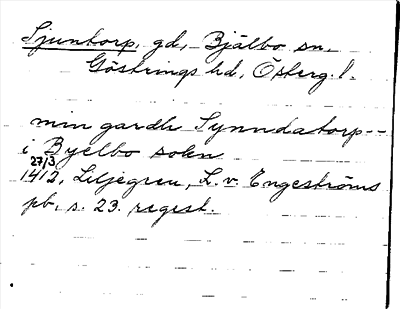 Sjuntorp, gd, Bjälbo sn,
Göstrings hd, Österg. l.
min gardh Synndatorp--
i Byelbo sokn
27/3
1412, Liljegren, L. v. Engeströms
pb, s. 23. regest.